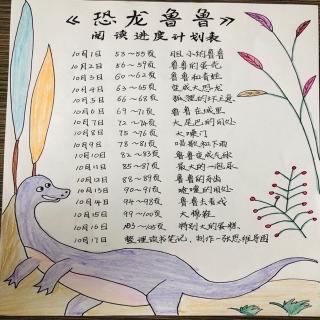 《恐龙鲁鲁》
阅读进度计划表
10月1日 53—55页 胆小的鲁鲁
10月2日 56—59页 鲁鲁的蛋壳
10月3日 60—62页 鲁鲁和青蛙
10月4日 63—65页 变成大恐龙
10月5日 66—68页 狐狸的坏主意
10月6日 69—71页 鲁鲁在城里
10月7日 72—74页 大尾巴的用处
10月8日 75—76页 大嗓门
10月9日 78—81页 唱歌和下雨
10月10日 82—83页 鲁鲁变成气球
10月11日 85—87页 最大的一起
10月12日 88—89页 鲁鲁的牙齿
10月13日 90—91页 的用处
10月14日 94—98页 鲁鲁去看戏
10月15日 99—100页 大棉鞋
10月16日 103—105页 特别大的蛋糕
10月17日 整理读书笔记，制作一张思维导图